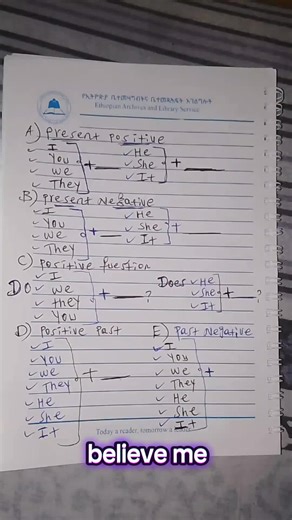 የኢትዮጵያ ቤተመዛግብትና ቤተመጻሕፍት አገልግሎት
Ethiopian Archives and Library Service
A) Present Positive
I
You
We
They
+ ____
He
She
It
+ ____
B) Present Negative
I
You
We
They
+ ____
He
She
It
+ ____
C) Positive fuestion
Do
I
We
they
You
+ ____ ?
Does
He
She
It
+ ____ ?
D) Positive Past
I
You
We
They
He
She
It
+ ____
E) Past Negative
I
You
We
They
He
She
It
+
Today a reader, tomorrow a
believe me